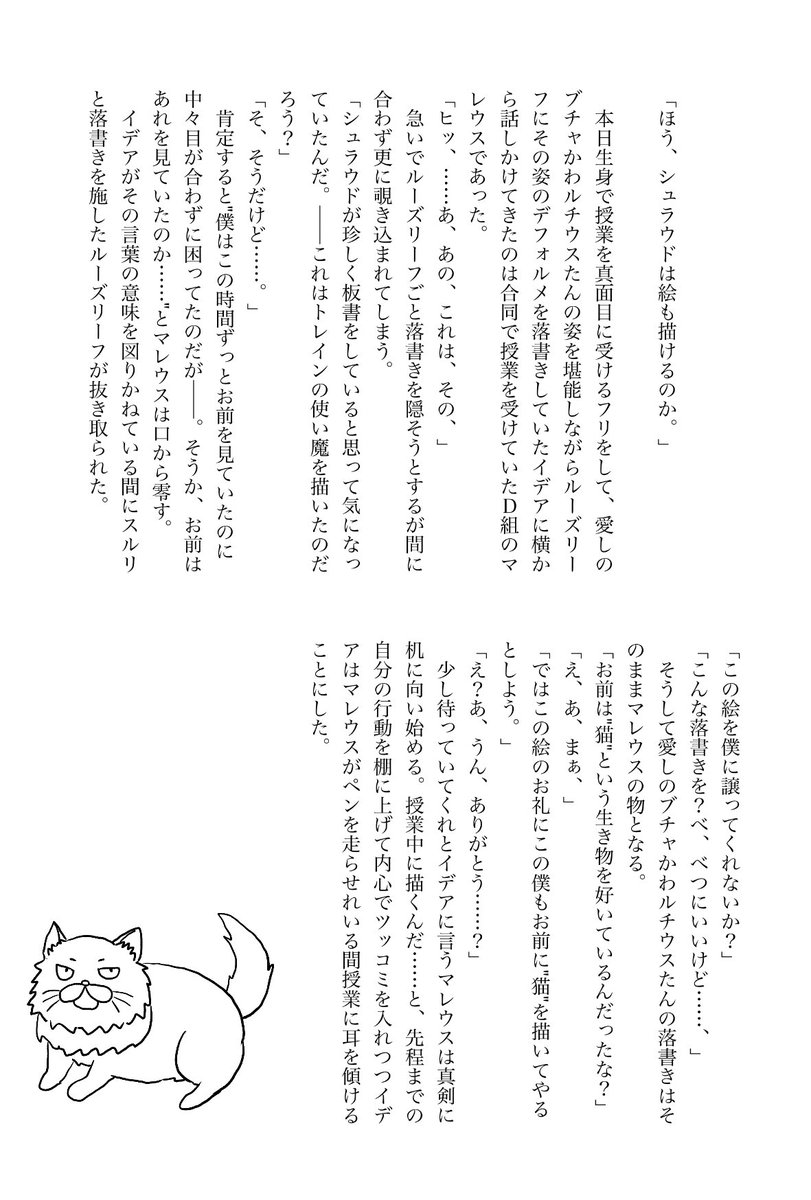 「ほう、シュラウドは絵も描けるのか。」
本日生身で授業を真面目に受けるフリをして、愛しの
ブチャかわルチウスたんの姿を堪能しながらルーズリー
フにその姿のデフォルメを落書きしていたイデアに横か
ら話しかけてきたのは合同で授業を受けていたD組のマ
レウスであった。
「ヒッ、……あ、あの、これは、その、」
急いでルーズリーフごと落書きを隠そうとするが間に
合わず更に覗き込まれてしまう。
「シュラウドが珍しく板書をしていると思って気になっ
ていたんだ。――これはトレインの使い魔を描いたのだ
ろう？」
「そ、そうだけど……。」
肯定すると"僕はこの時間ずっとお前を見ていたのに
中々目が合わずに困ってたのだが――。そうか、お前は
あれを見ていたのか……"とマレウスは口から零す。
イデアがその言葉の意味を図りかねている間にスルリ
と落書きを施したルーズリーフが抜き取られた。
「この絵を僕に譲ってくれないか？」
「こんな落書きを？べ、べつにいいけど……、」
そうして愛しのブチャかわルチウスたんの落書きはそ
のままマレウスの物となる。
「お前は"猫"という生き物を好いているんだったな？」
「え、あ、まぁ、」
「ではこの絵のお礼にこの僕もお前に"猫"を描いてやる
としよう。」
「え？あ、うん、ありがとう……？」
少し待っていてくれとイデアに言うマレウスは真剣に
机に向い始める。授業中に描くんだ……と、先程までの
自分の行動を棚に上げて内心でツッコミを入れつつイデ
アはマレウスがペンを走らせれいる間授業に耳を傾ける
ことにした。